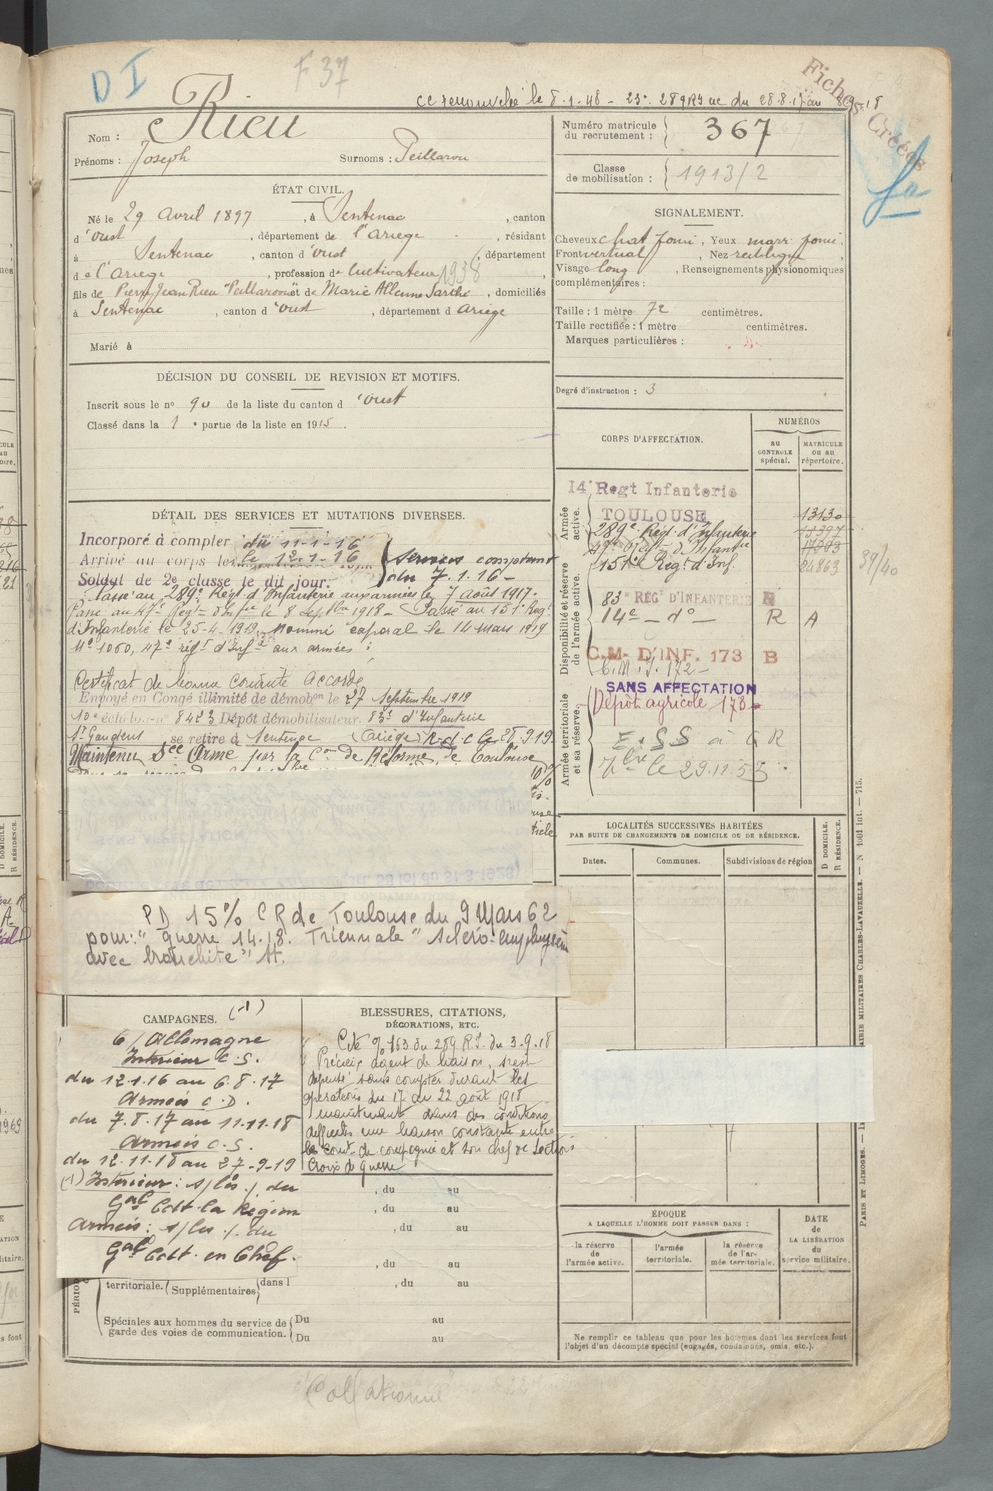 D I
F 37
Fiches Créées
CC renouvelée le 8-1-48
Nom : Rieu
Prénoms : Joseph Surnoms : Peillarou
Numéro matricule du recrutement : 367
Classe de mobilisation : 1913/2
ÉTAT CIVIL.
Né le 29 avril 1897, à Sentenac, canton
d'Oust, département de l'Ariège, résidant
à Sentenac, canton d'Oust, département
de l'Ariège, profession de Cultivateur 1938
fils de Pierre Jean Rieu "Peillarou" et de Marie , domiciliés
à Sentenac, canton d'Oust, département d Ariège
Marié à
SIGNALEMENT.
Cheveux chat foncé, Yeux marr foncé,
Front vertical, Nez rectiligne,
Visage long, Renseignements physionomiques
complémentaires :
Taille : 1 mètre 72 centimètres.
Taille rectifiée : 1 mètre centimètres.
Marques particulières :
Degré d'instruction : 3
DÉCISION DU CONSEIL DE REVISION ET MOTIFS.
Inscrit sous le no 90 de la liste du canton d'Oust
Classé dans la 1e partie de la liste en 1915.
DÉTAIL DES SERVICES ET MUTATIONS DIVERSES.
Incorporé à compter du 11-1-16
Arrivé au corps le 12-1-16
Soldat de 2e classe le dit jour.
Services comptent du 7.1.16
Passé au 289e Régt d'Infanterie aux armées le 7 août 1917.
Passé au 47e Régt d'Infrie le 8 Septbre 1918 - Passé au 151e Régt
d'Infanterie le 25-4-1919. Nommé caporal le 14 mars 1919
No 1060, 47e régt d'Infie aux armées
Certificat de bonne conduite Accordé
Envoyé en Congé illimité de démobon le 27 Septembre 1919
10e échelon no 8423 Dépôt démobilisateur. 83e d'Infanterie
St Gaudens se retire à Sentenac (Ariège) R.d.c. le 28-9-19
Maintenu Sce Armé par la Con de Réforme de Toulouse
PD 15% C R de Toulouse du 9 Mars 62
pour : "Guerre 14.18. Triennale" scléro-emphysème
avec bronchite" A.
CORPS D'AFFECTATION.
NUMÉROS
au contrôle spécial.
MATRICULE ou au répertoire.
Armée active.
14e Regt Infanterie
TOULOUSE 1313
289e Régt d'Infanterie
47e Régt d'Infanterie
151e Régt d'Inf. 24863
39/40
Disponibilité et réserve de l'armée active.
83e REGt D'INFANTERIE R
14e — do — R A
C.M. D'INF. 173 B
C.M.I. 172
Armée territoriale et sa réserve.
SANS AFFECTATION
Dépôt agricole 173
le 29.11.53
LOCALITÉS SUCCESSIVES HABITÉES
PAR SUITE DE CHANGEMENTS DE DOMICILE OU DE RÉSIDENCE.
Dates. Communes. Subdivisions de région
D DOMICILE.
R RÉSIDENCE.
CAMPAGNES. (-1)
C/ Allemagne
Intérieur C.S.
du 12.1.16 au 6.8.17
Armées C.D.
du 7.8.17 au 11.11.18
Armées C.S.
du 12.11.18 au 27-9-19
(-1) Intérieur : s/les /. du
Gal Cdt la Région
Armées : s/les /. du
Gal Cdt en Chef.
BLESSURES, CITATIONS,
DÉCORATIONS, ETC.
Cité o/ 163 du 289 R.I. du 3-9-18
Précieux agent de liaison, s'est
dépensé sans compter durant les
opérations du 17 au 22 août 1918
maintenant dans des conditions
difficiles une liaison constante entre
le Cont de compagnie et son chef de section
Croix de guerre
, du au
, du au
, du au
, du au
territoriale. Supplémentaires dans l , du au
Spéciales aux hommes du service de garde des voies de communication.
Du au
Du au
ÉPOQUE
A LAQUELLE L'HOMME DOIT PASSER DANS :
la réserve de l'armée active.
l'armée territoriale.
la réserve de l'armée territoriale.
DATE de LA LIBÉRATION du service militaire.
Ne remplir ce tableau que pour les hommes dont les services font
l'objet d'un décompte spécial (engagés, condamnés, omis, etc.).
Collationné